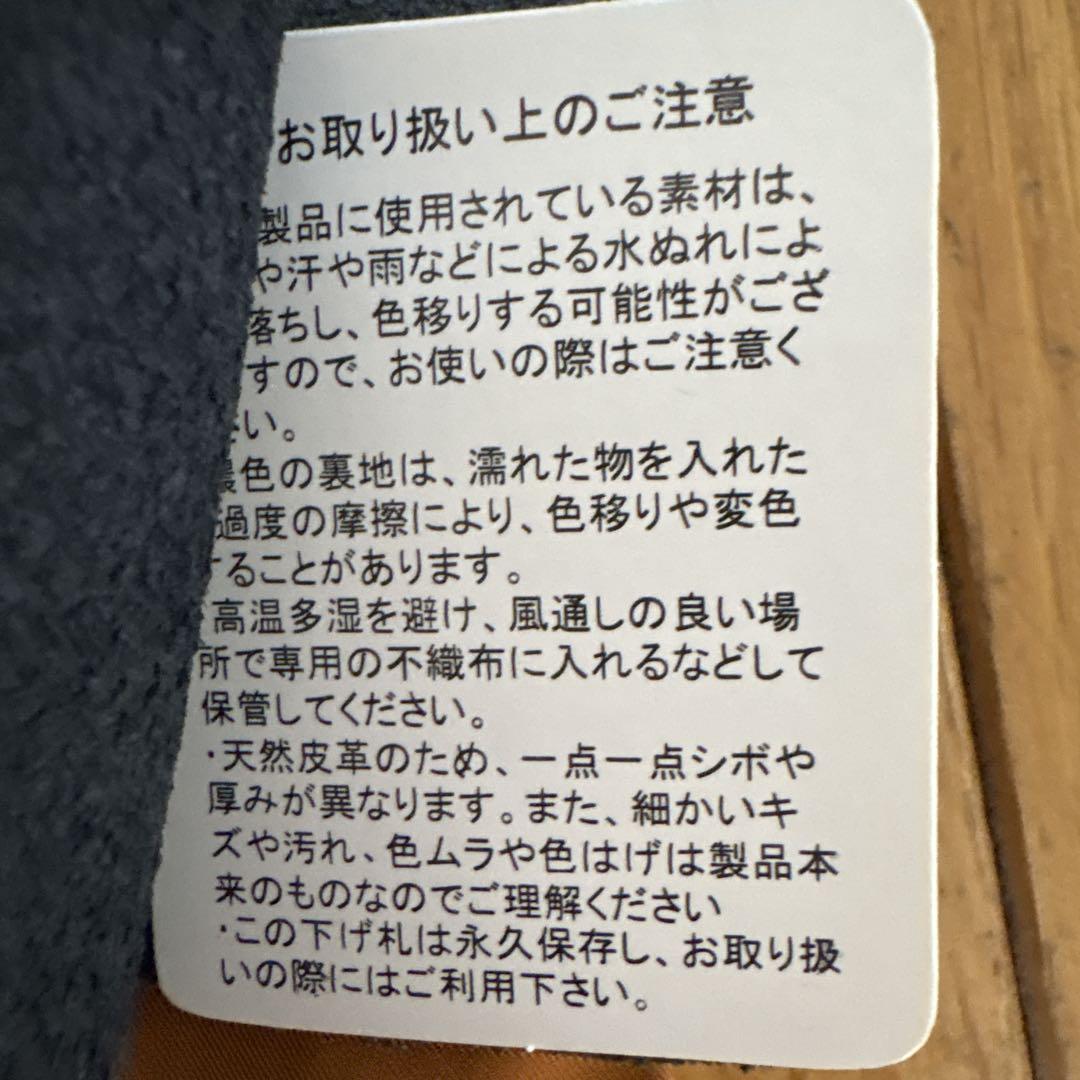 お取り扱い上のご注意
製品に使用されている素材は、
や汗や雨などによる水ぬれによ
落ちし、色移りする可能性がござ
すので、お使いの際はご注意く
い。
色の裏地は、濡れた物を入れた
過度の摩擦により、色移りや変色
ることがあります。
高温多湿を避け、風通しの良い場
所で専用の不織布に入れるなどして
保管してください。
・天然皮革のため、一点一点シボや
厚みが異なります。また、細かいキ
ズや汚れ、色ムラや色はげは製品本
来のものなのでご理解ください
・この下げ札は永久保存し、お取り扱
いの際にはご利用下さい。